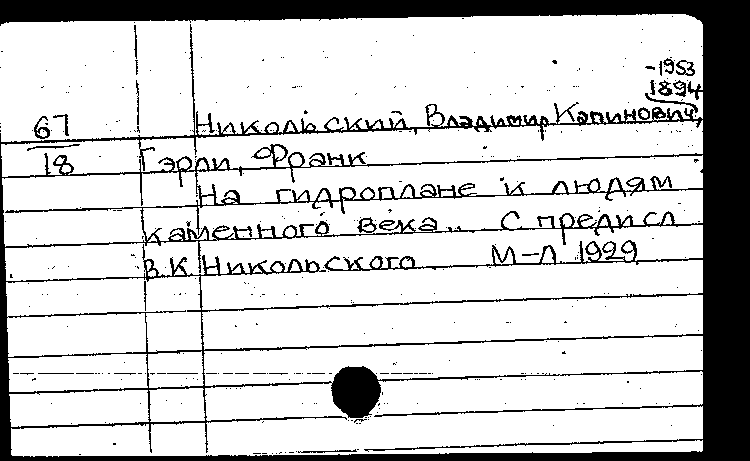 -1953
1894
67 Никольский, Владимир Капинович,
18 Гэрли, Франк
На гидроплане к людям
каменного века.. С предисл
В.К Никольского М-Л 1929